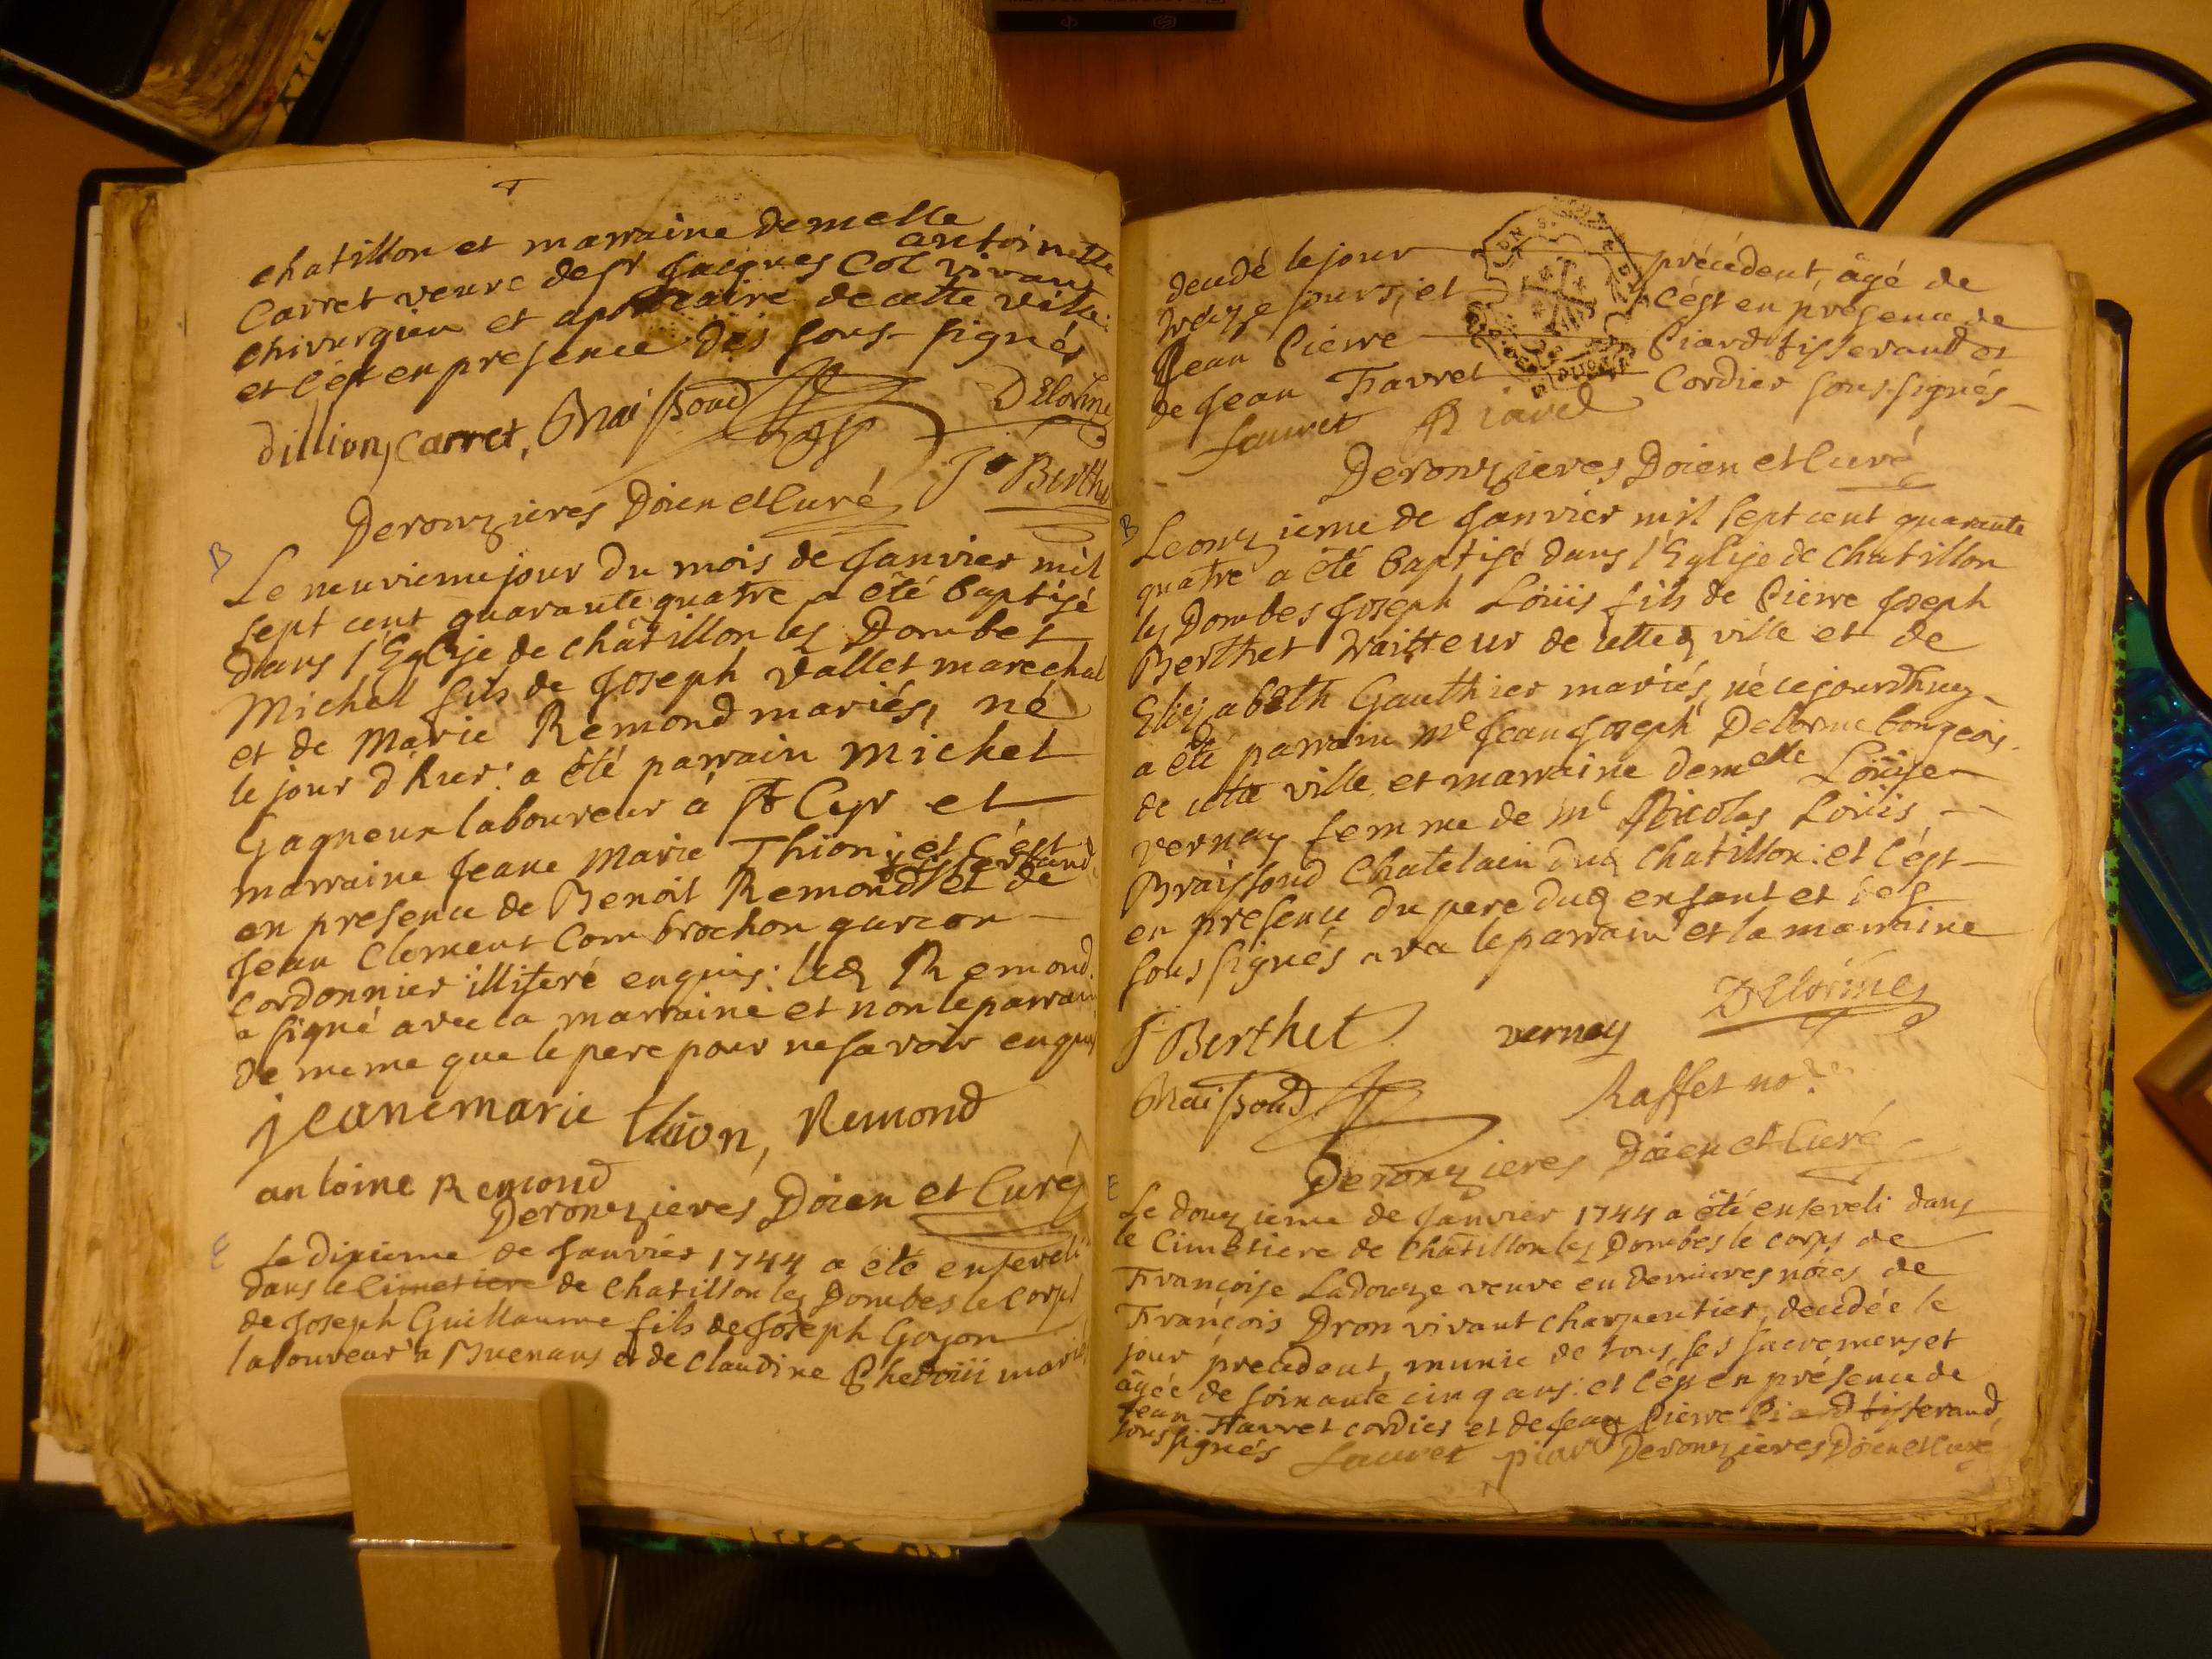 chatillon et marraine demelle
antoinette
Carret veuve de sr Jacques Col vivant
chirurgien et apoticaire de cette ville:
et c'est en presence des sous-signés
dillion, carret, Braissoud Delorme
Js Berthe
Deronzieres Doien et Curé
B
Le neuvieme jour du mois de Janvier mil
sept cent quarante quatre a été baptisé
dans l'Eglise de châtillon les Dombes
Michel fils de Joseph vallet marechal
et de Marie Remond mariés, né
le jour d'hier: a été parrain michel
Gagneux laboureur à St Cyr et
marraine Jeane Marie Thion; et c'est
en presence de Benoit Remond et de
Jean Clement Combrochon garcon
cordonnier illiteré enquis: led Remond
a signé avec la marraine et non le parrain
de meme que le pere pour ne savoir enquis
jeanemarie thion, Remond
antoine Remond
Deronzieres Doien et Curé
E
Le dixieme de Janvier 1744 a été enseveli
dans le Cimetiere de chatillon les Dombes le corps
de Joseph Guillaume fils de Joseph Goyon
laboureur à Buenans et de claudine mariés
decedé le jour précédent, âgé de
treize jours, et c'est en présence de
Jean Pierre Piard tisserand et
de Jean Favret Cordier sous-signés
favret Piard
Deronzieres Doien et Curé
B
Le onzieme de Janvier mil sept cent quarante
quatre a été baptisé dans l'Eglise de chatillon
les Dombes Joseph Loüis fils de Pierre Joseph
Berthet traitteur de cette ville et de
Elizabeth Gauthier mariés, né cejourdhuy
a été parrain me Jean Joseph Delorme bourgeois
de cette ville et marraine demelle Loüise
vernay femme de me Nicolas Loüis
Braissoud Chatelain dud chatillon: et c'est
en presence du pere dud enfant et des
sous signés avec le parrain et la marraine
Berthet vernay Delorme
Braissoud Raffet nore
Deronzieres Doien et Curé
E
Le douzieme de Janvier 1744 a été enseveli dans
le Cimetiere de chatillon les Dombes le corps de
Françoise Ladouze veuve en dernieres nôces de
François Dron vivant charpentier, decedée le
jour precedent, munie de tous ses sacremens et
âgée de soixante cinq ans: et c'est en présence de
Jean Favret cordier et de Jean Pierre Piard tisserand
sous signés favret piard Deronzieres Doien et Curé